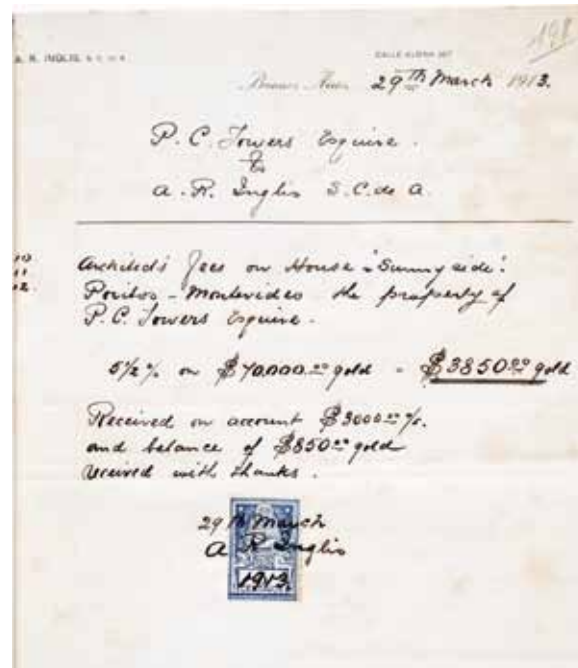 198
A. R. INGLIS, S. C. de A.
CALLE ALSINA
Buenos Aires 29th March 1913.
P. C. Towers Esquire.
To
A. R. Inglis S. C. de A.
10
11
12.
Architect's Fees on House "Sunnyside".
Pocitos - Montevideo the property of
P. C. Towers Esquire.
5½ % on $70,000.00 gold - $3850.00 gold
Received on account $3000.00 %.
and balance of $850.00 gold
received with thanks.
29th March
A R Inglis
1913.